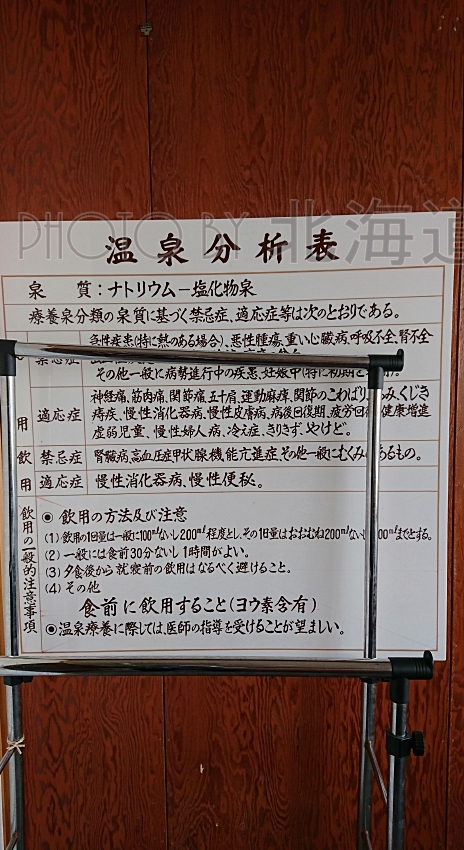 PHOTO BY 北海道
温泉分析表
泉 質：ナトリウム－塩化物泉
療養泉分類の泉質に基づく禁忌症、適応症等は次のとおりである。
急性疾患(特に熱のある場合)、悪性腫瘍、重い心臓病、呼吸不全、腎不全
禁忌症
その他一般に病勢進行中の疾患、妊娠中(特に初期と
神経痛、筋肉痛、関節痛、五十肩、運動麻痺、関節のこわばり、うちみ、くじき
用 適応症 痔疾、慢性消化器病、慢性皮膚病、病後回復期、疲労回復、健康増進
虚弱児童、慢性婦人病、冷え症、きりきず、やけど。
飲 禁忌症 腎臓病、高血圧症甲状腺機能亢進症、その他一般にむくみのあるもの。
用 適応症 慢性消化器病、慢性便秘。
飲用の一般的注意事項
◉ 飲用の方法及び注意
(1) 飲用の1回量は一般に100mlないし200ml程度とし、その1日量はおおむね200mlないし mlまでとする。
(2) 一般には食前30分ないし1時間がよい。
(3) 夕食後から就寝前の飲用はなるべく避けること。
(4) その他
食前に飲用すること(ヨウ素含有)
◉温泉療養に際しては、医師の指導を受けることが望ましい。